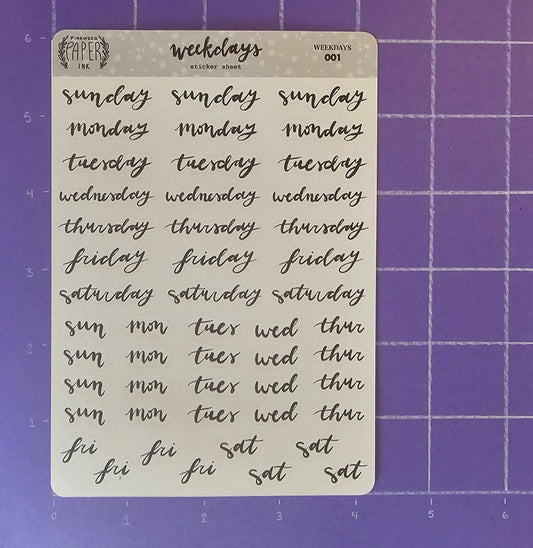 FIREWEED
PAPER
INK
weekdays
sticker sheet
WEEKDAYS
001
sunday sunday sunday
monday monday monday
tuesday tuesday tuesday
wednesday wednesday wednesday
thursday thursday thursday
friday friday friday
saturday saturday saturday
sun mon tues wed thur
sun mon tues wed thur
sun mon tues wed thur
sun mon tues wed thur
fri fri sat sat
fri fri sat sat
6
5
4
3
2
1
0 1 2 3 4 5 6